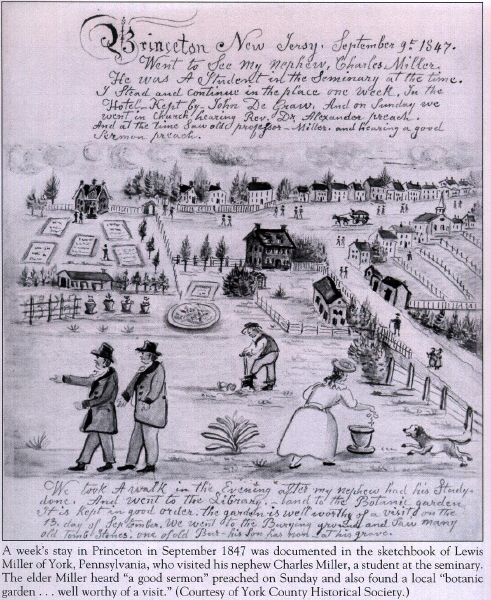 Princeton New Jersy. September 9th 1847.
Went to See my nephew, Charles Miller.
He was A Student in the Seminary at the time.
I Stead and continue in the place one Week, In the
Hotel_Kept by_ John De Graw, And on Sunday we
went in Church, hearing Rev. Dr Alexander preach.
And at the time Saw old professor_Miller. and hearing a good
Sermon preach.
We took A walk in the Evening after my nephew had his Study_
done. And went to the Library, and to the Botanic garden
It is kept in good order, the garden is well worthy of a visit_on the
13. day of September. We went to the Burying ground and Saw many
old Tomb Stones, one of old Bur_his Son has at his grave.
A week's stay in Princeton in September 1847 was documented in the sketchbook of Lewis
Miller of York, Pennsylvania, who visited his nephew Charles Miller, a student at the seminary.
The elder Miller heard "a good sermon" preached on Sunday and also found a local "botanic
garden . . . well worthy of a visit." (Courtesy of York County Historical Society.)